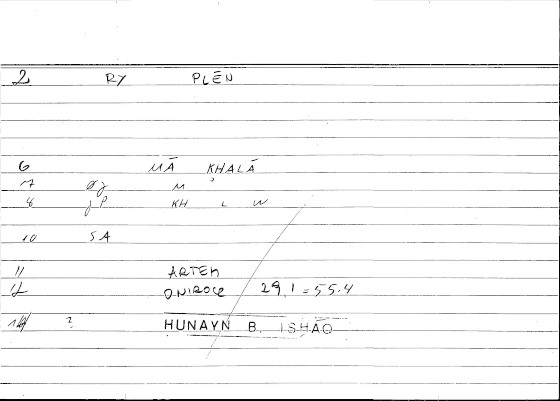 2 RY PLĒN
6 MĀ KHALĀ
7 M
8 jP KH L W
10 SA
11 ARTEM
12 ONIROCR 29,1 = 55.4
? HUNAYN B. ISHĀQ